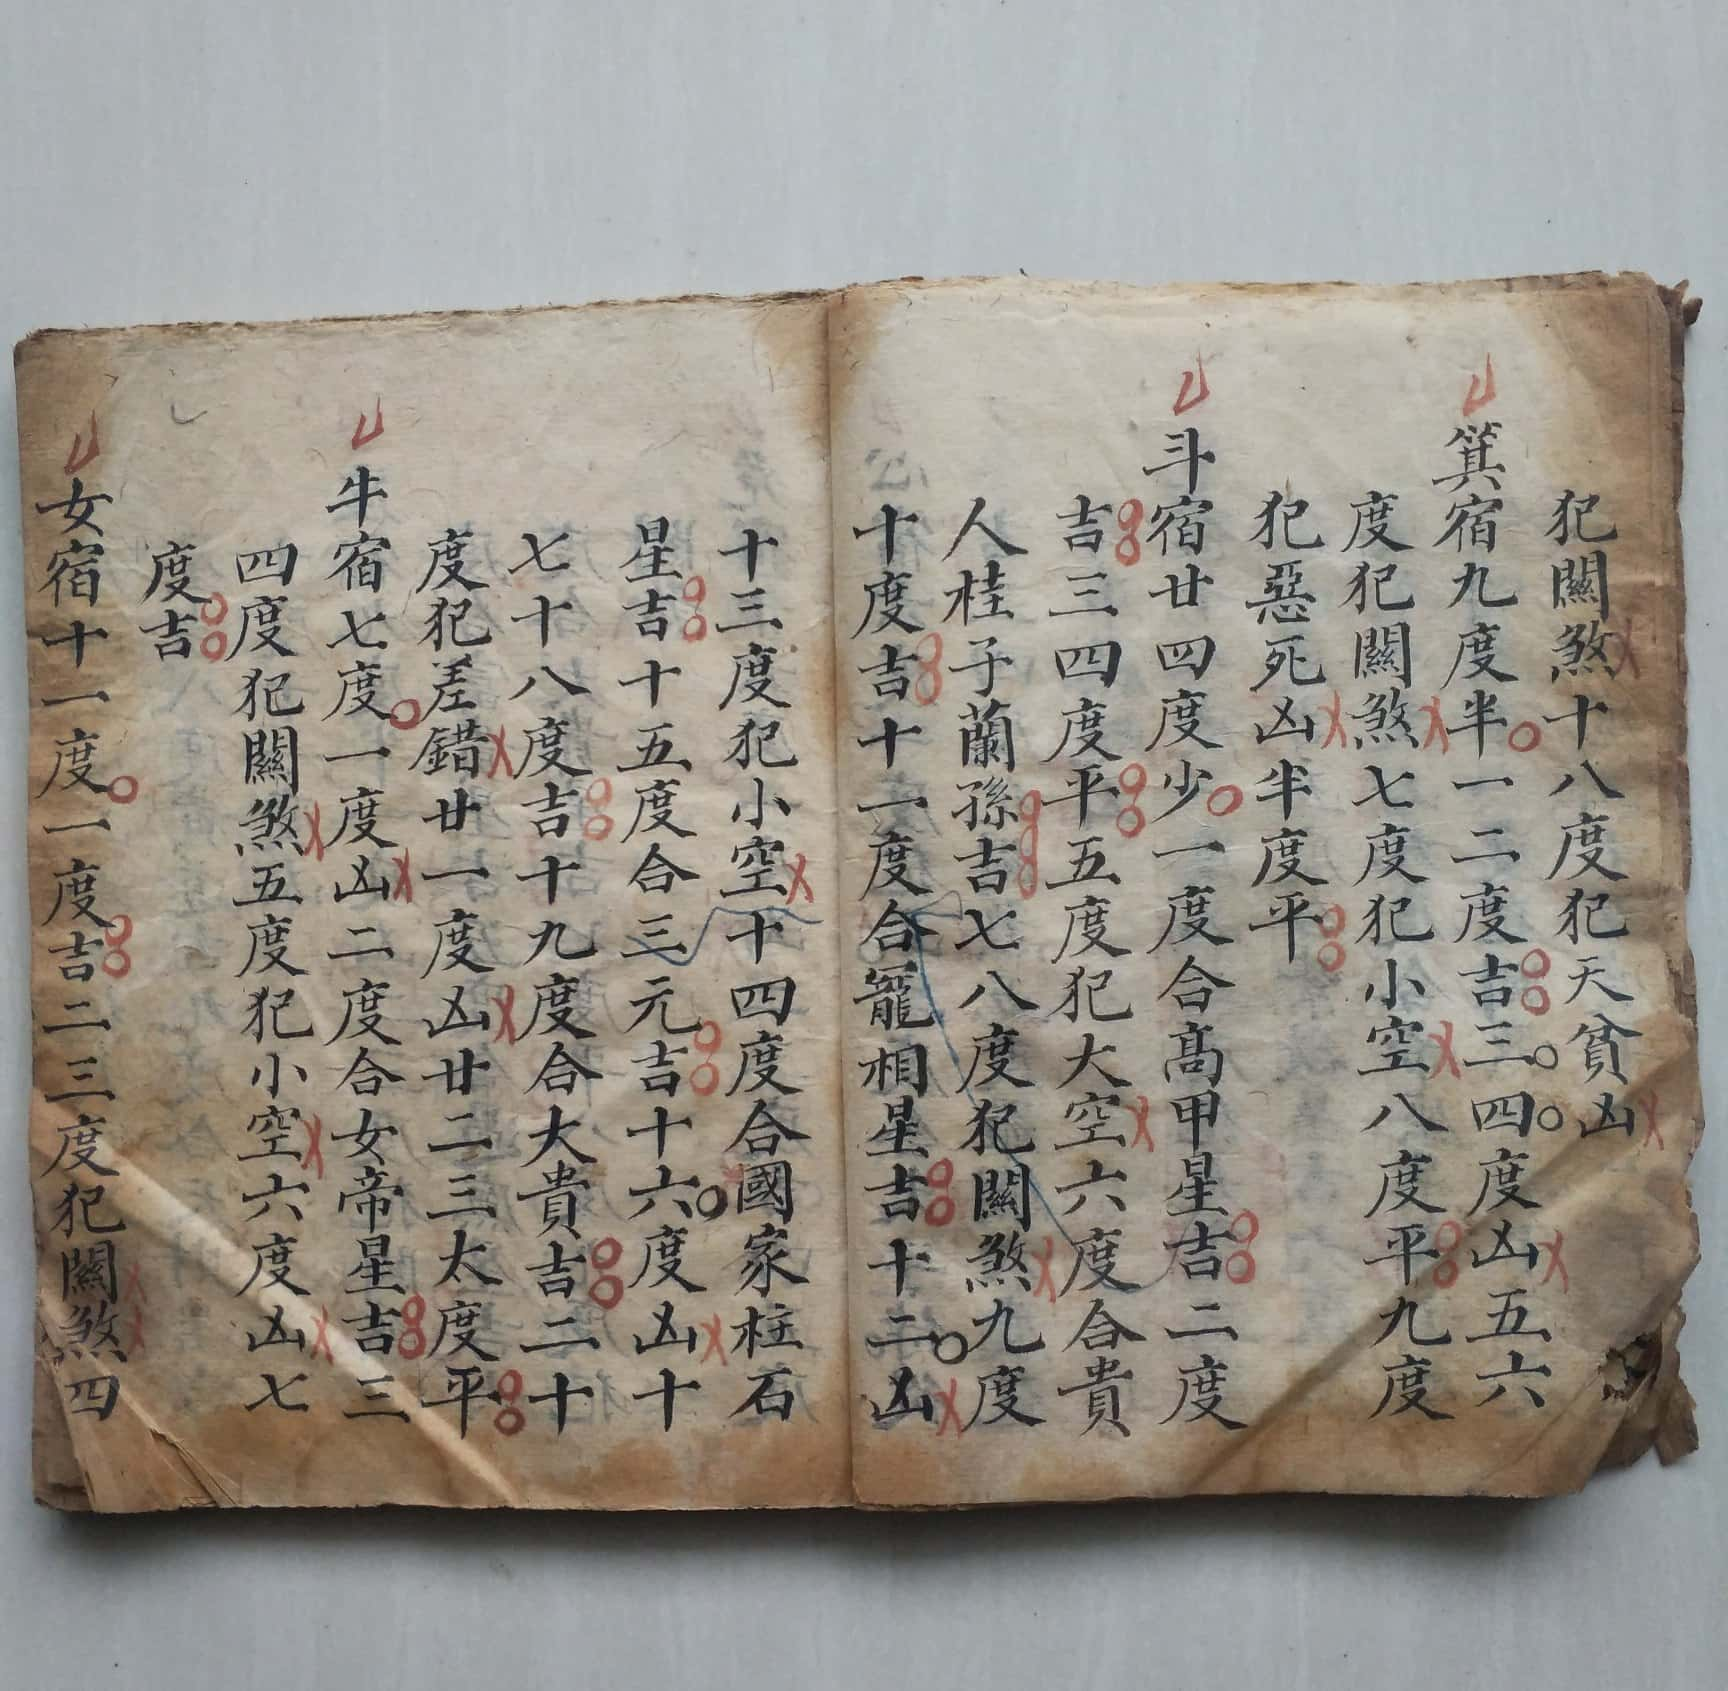 犯關煞十八度犯天貧凶
箕宿九度半一二度吉三四度凶五六
度犯關煞七度犯小空八度平九度
犯惡死凶半度平
斗宿廿四度少一度合髙甲星吉二度
吉三四度平五度犯大空六度合貴
人桂子蘭孫吉七八度犯關煞九度
十度吉十一度合寵相星吉十二凶
十三度犯小空十四度合國家柱石
星吉十五度合三元吉十六度凶十
七十八度吉十九度合大貴吉二十
度犯差錯廿一度凶廿二三太度平
牛宿七度一度凶二度合女帝星吉三
四度犯關煞五度犯小空六度凶七
度吉
女宿十一度一度吉二三度犯關煞四